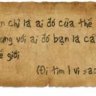 n chỉ là ai đó của thế
ưng với ai đó bạn là cả
ế giới
(Đi tìm 1 vì sao